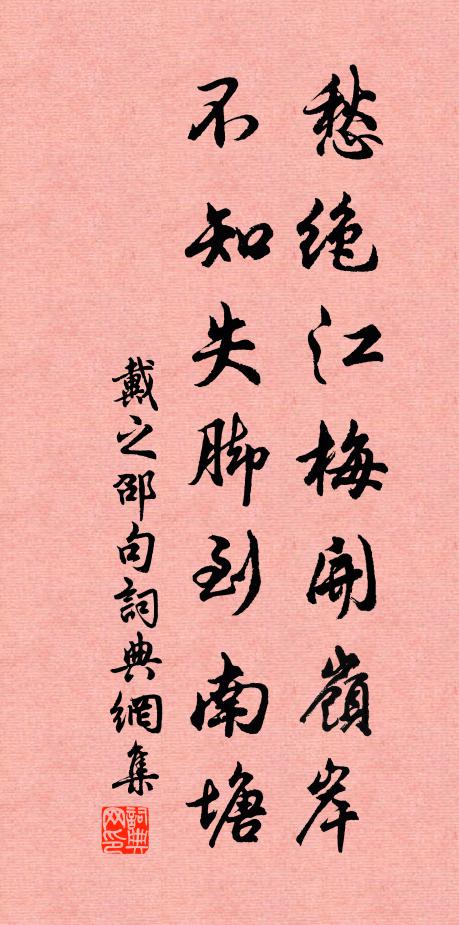 愁絶江梅開嶺岸
不知失脚到南塘
戴之邵句詞典網集
詞典网印